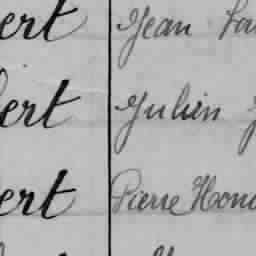 ert Jean
ert Julien
ert Pierre Hono